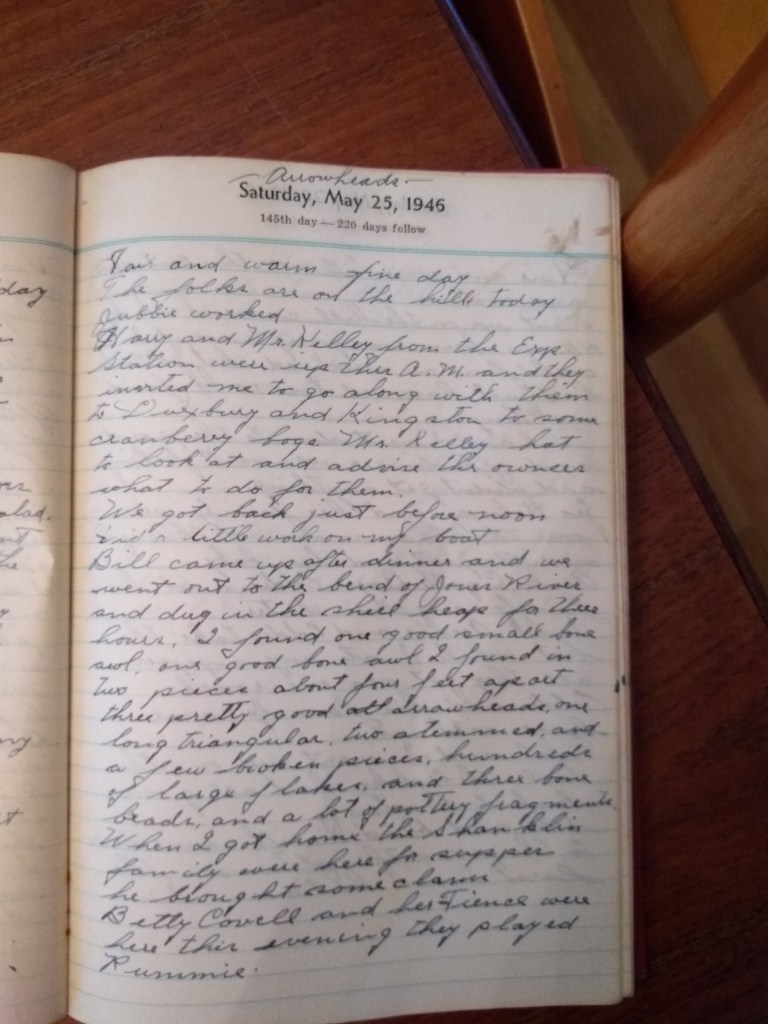 Arrowheads
Saturday, May 25, 1946
145th day — 220 days follow
Fair and warm fine day
The folks are on the hill today
Jubbie worked
Harry and Mr. Kelley from the Exp.
Station were up this A.M. and they
invited me to go along with them
to Duxbury and Kingston to some
cranberry bogs Mr. Kelley hat
to look at and advise the owners
what to do for them.
We got back just before noon
did a little work on my boat
Bill came up after dinner and we
went out to the bend of Jones River
and dug in the shell heap for three
hours, I found one good small bone
awl, one good bone awl I found in
two pieces about four feet apart
three pretty good arrowheads, one
long triangular, two stemmed, and
a few broken pieces, hundreds
of large flakes, and three bone
beads, and a lot of pottery fragments.
When I got home the Shanklin
family were here for supper
he brought some clams
Betty Covell and her Fience were
here this evening they played
Rummie.
day
alad.
the